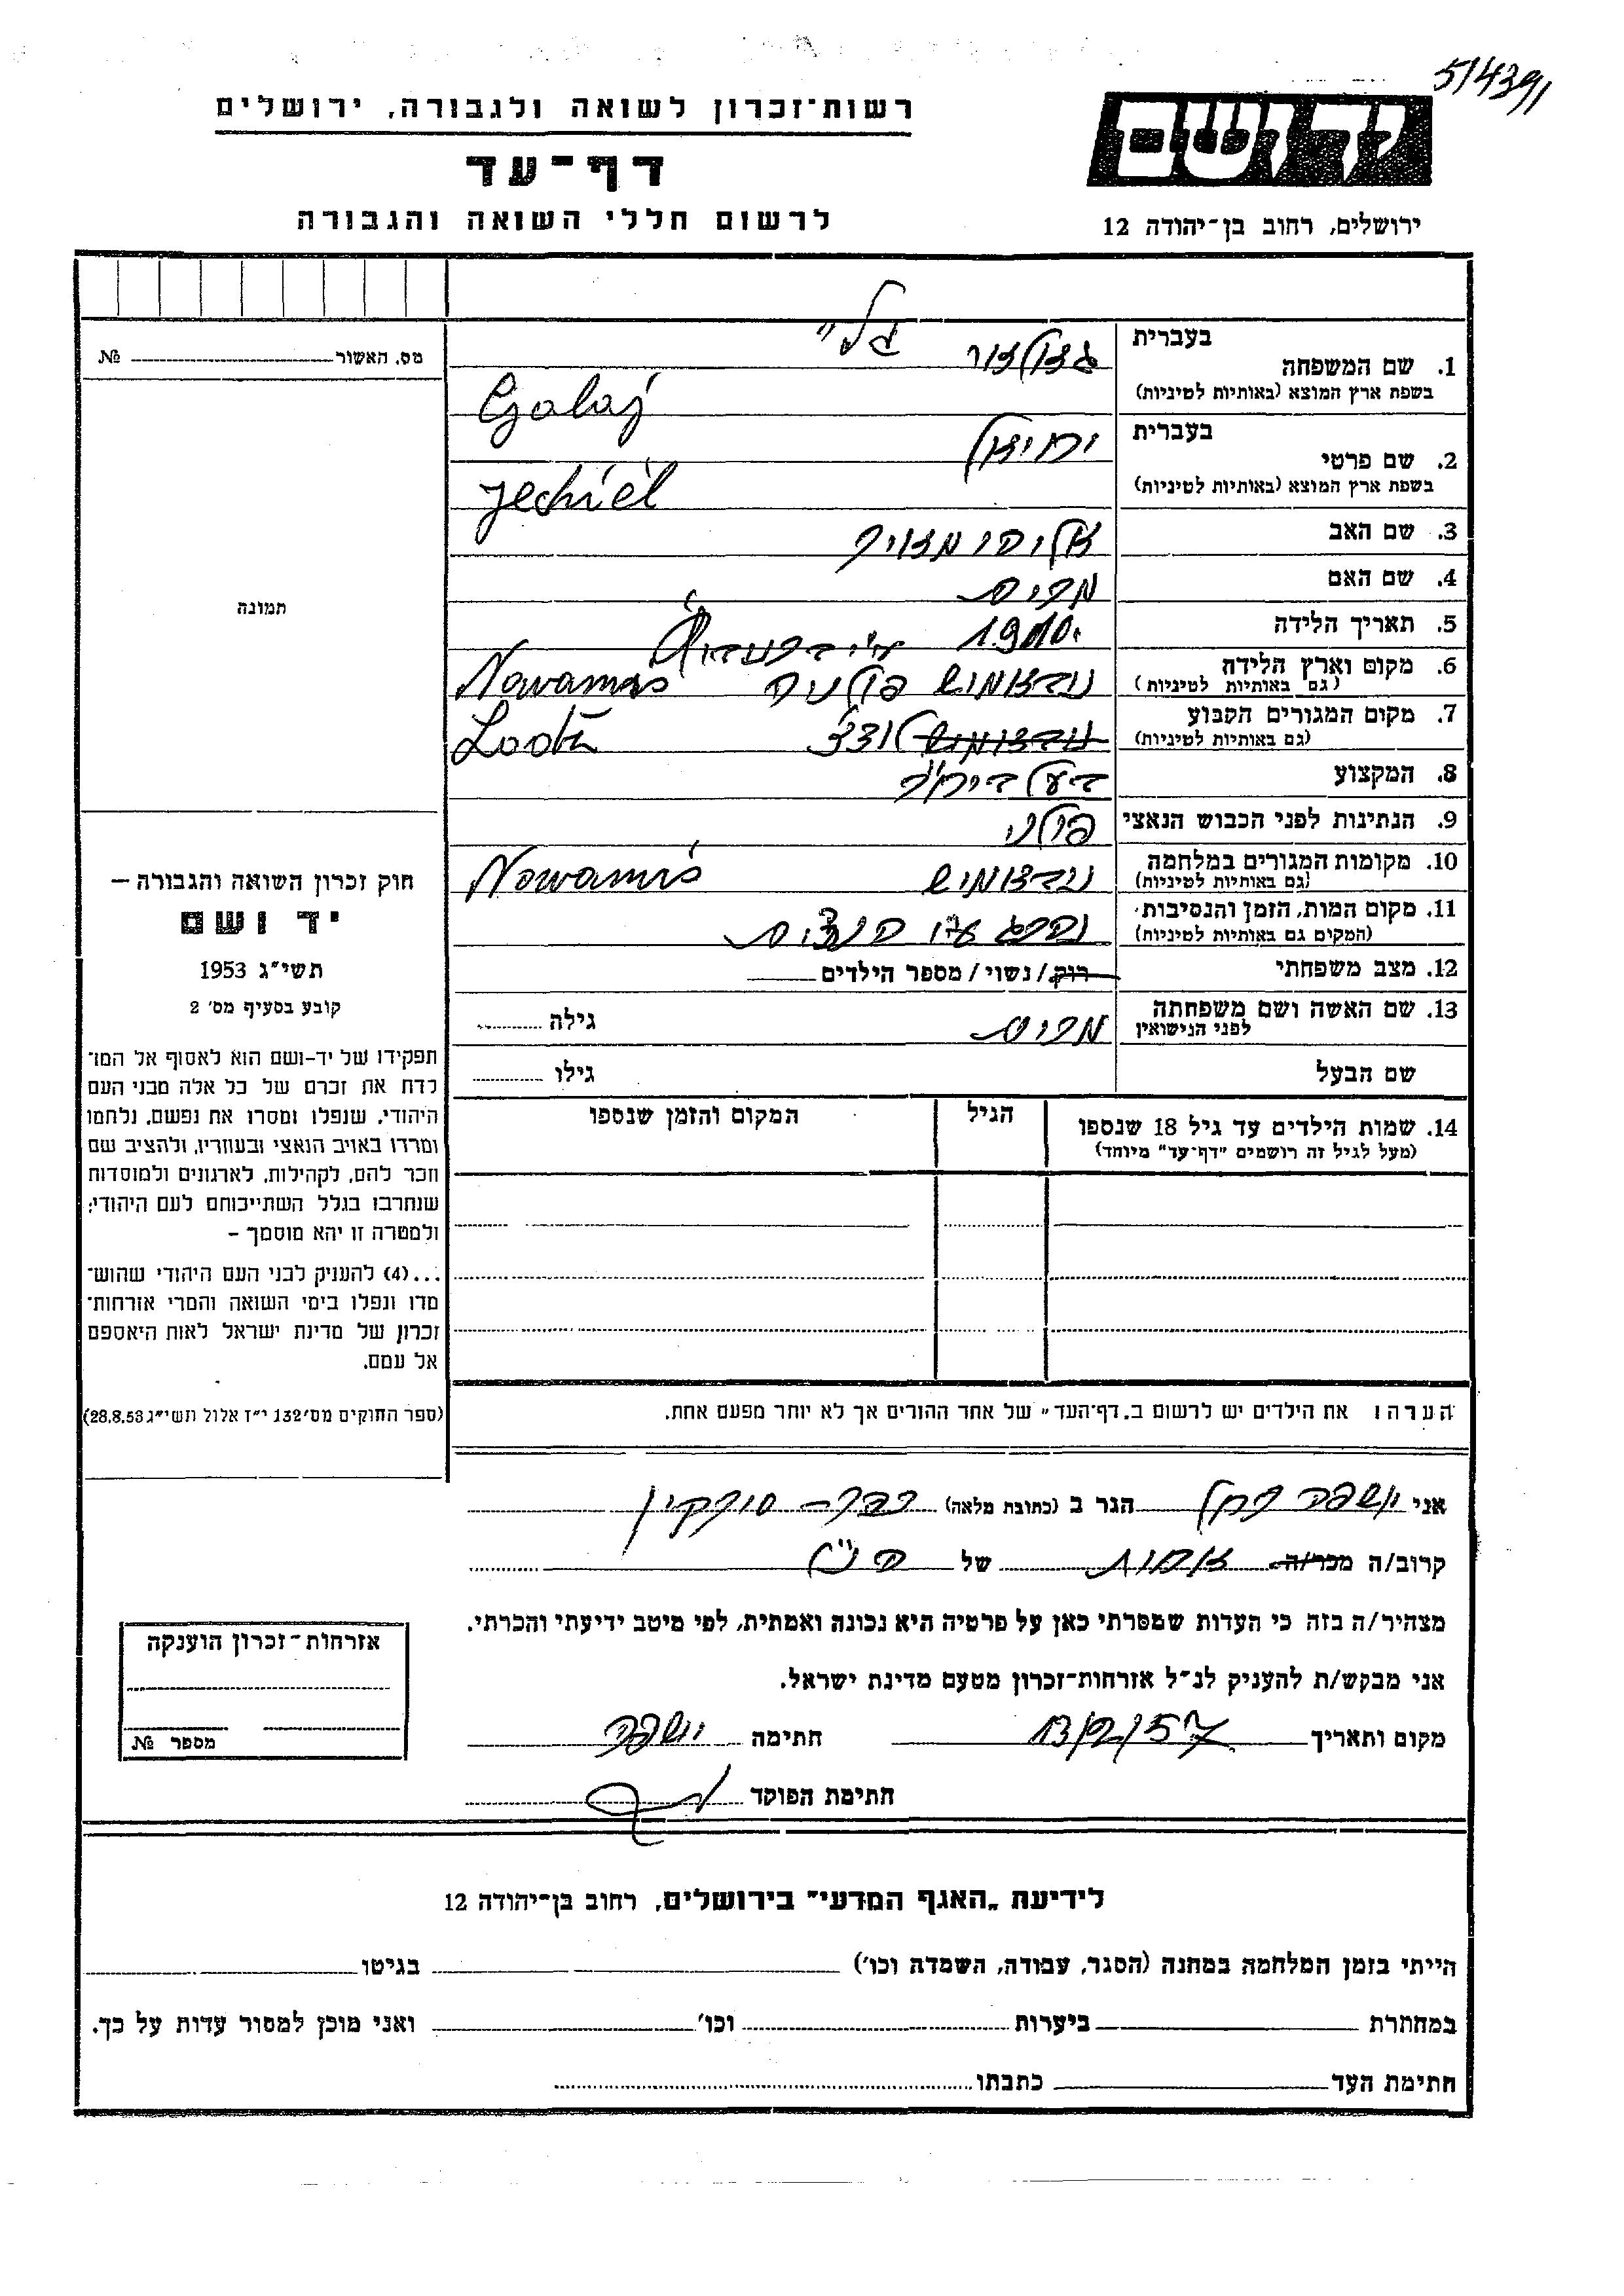 5/4391
רשות־זכרון לשואה ולגבורה, ירושלים
יד ושם
דף־עד
לרשום חללי השואה והגבורה
ירושלים, רחוב בן־יהודה 12
בעברית
1. שם המשפחה
בשפת ארץ המוצא (באותיות לטיניות)
Galaj
מס. האשור № 
בעברית
יחיאל
2. שם פרטי
בשפת ארץ המוצא (באותיות לטיניות)
Jechiel
3. שם האב
4. שם האם
מרים
תמונה
5. תאריך הלידה
1910
6. מקום וארץ הלידה
(גם באותיות לטיניות)
Nowamis
7. מקום המגורים הקבוע
(גם באותיות לטיניות)
לודז'
8. המקצוע
9. הנתינות לפני הכבוש הנאצי
פולני
10. מקומות המגורים במלחמה
(גם באותיות לטיניות)
Nowamis
11. מקום המות, הזמן והנסיבות
(המקום גם באותיות לטיניות)
נהרג ע"י הנאצים
12. מצב משפחתי
רוק/נשוי/מספר הילדים
13. שם האשה ושם משפחתה
לפני הנישואין
מרים
גילה
שם הבעל
גילו
14. שמות הילדים עד גיל 18 שנספו
(מעל לגיל זה רושמים "דף־עד" מיוחד)
הגיל
המקום והזמן שנספו
חוק זכרון השואה והגבורה –
יד ושם
תשי"ג 1953
קובע בסעיף מס' 2
תפקידו של יד-ושם הוא לאסוף אל המו־
לדת את זכרם של כל אלה מבני העם
היהודי, שנפלו ומסרו את נפשם, נלחמו
ומרדו באויב הנאצי ובעוזריו, ולהציב שם
וזכר להם, לקהילות, לארגונים ולמוסדות
שנחרבו בגלל השתייכותם לעם היהודי;
ולמטרה זו יהא מוסמך –
...(4) להעניק לבני העם היהודי שהוש־
מדו ונפלו בימי השואה והמרי אזרחות־
זכרון של מדינת ישראל לאות היאספם
אל עמם.
(ספר החוקים מס' 132 י"ז אלול תשי"ג 28.8.53)
הערה: את הילדים יש לרשום ב„דף־העד" של אחד ההורים אך לא יותר מפעם אחת.
אני יוספה רחל הגר ב (כתובת מלאה)
קרוב/ה מכר/ה אחות של הנ"ל
מצהיר/ה בזה כי העדות שמסרתי כאן על פרטיה היא נכונה ואמתית, לפי מיטב ידיעתי והכרתי.
אני מבקש/ת להעניק לנ"ל אזרחות־זכרון מטעם מדינת ישראל.
מקום ותאריך 13/2/57 חתימה יוספה
חתימת הפוקד
אזרחות־זכרון הוענקה
מספר №
לידיעת „האגף המדעי" בירושלים, רחוב בן־יהודה 12
הייתי בזמן המלחמה במחנה (הסגר, עבודה, השמדה וכו') בגיטו
במחתרת ביערות וכו' ואני מוכן למסור עדות על כך.
חתימת העד כתבתו